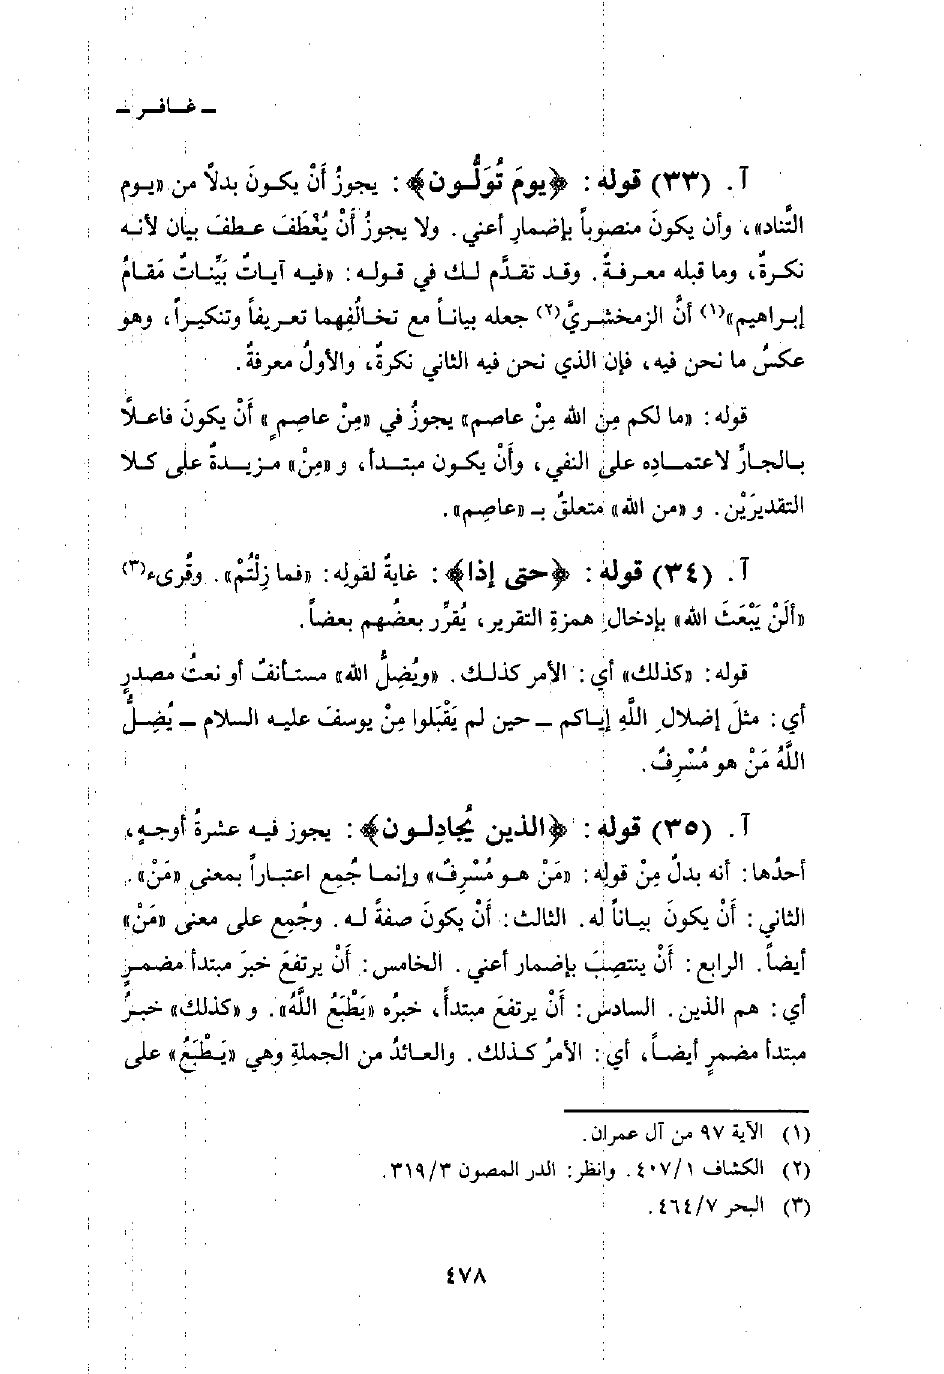 ـ غـافـر ـ
آ. (٣٣) قوله: ﴿يومَ تُوَلُّـون﴾: يجوزُ أَنْ يكـونَ بدلاً من «يـوم
التَّناد»، وأن يكونَ منصوباً بإضمارِ أعني. ولا يجوزُ أَنْ يُعْطَفَ عـطفَ بيان لأنـه
نكـرةٌ، وما قبله معـرفـةٌ. وقـد تقدَّم لـك في قـولـه: «فيـه آيـاتٌ بَيِّنـاتٌ مَقـامُ
إبـراهيم»(١) أنَّ الزمخشـريَّ(٢) جعله بيانـاً مع تخـالُفِهما تعـريفاً وتنكيـراً، وهـو
عكسُ ما نحن فيه، فإن الذي نحن فيه الثاني نكرةٌ، والأولُ معرفةٌ.
قوله: «ما لكم مِن الله مِنْ عاصم» يجوزُ في «مِنْ عاصمٍ» أَنْ يكونَ فاعـلاً
بـالجـارِّ لاعتمـاده على النفي، وأَنْ يكـون مبتـدأً، و «مِنْ» مـزيـدةٌ على كـلا
التقديرَيْن. و «من الله» متعلقٌ بـ «عاصِم».
آ. (٣٤) قوله: ﴿حتى إذا﴾: غايةٌ لقولِه: «فما زِلْتُمْ». وقُرىء(٣)
«ألَنْ يَبْعَثَ الله» بإدخالِ همزةِ التقرير، يُقَرِّر بعضُهم بعضاً.
قوله: «كذلك» أي: الأمر كذلـك. «ويُضِلُّ الله» مستـأنفٌ أو نعتُ مصدرٍ
أي: مثلَ إضلالِ اللَّهِ إيـاكم ـ حين لم يَقْبَلوا مِنْ يوسفَ عليـه السلام ـ يُضِـلُّ
اللَّهُ مَنْ هو مُسْرِفٌ.
آ. (٣٥) قوله: ﴿الذين يُجادِلـون﴾: يجوز فيـه عشرةُ أوجـهٍ،
أحدُها: أنه بدلٌ مِنْ قولِه: «مَنْ هـو مُسْرِفٌ» وإنمـا جُمِع اعتبـاراً بمعنى «مَنْ».
الثاني: أَنْ يكونَ بيـاناً له. الثالث: أَنْ يكونَ صفةً لـه. وجُمِع على معنى «مَنْ»
أيضـاً. الرابع: أَنْ ينتصِبَ بإضمار أعني. الخامس: أَنْ يرتفعَ خبرَ مبتدأ مضمـرٍ
أي: هم الذين. السادس: أَنْ يرتفعَ مبتدأً، خبرُه «يَطْبَعُ اللَّهُ». و «كذلك» خبـرُ
مبتدأ مضمرٍ أيضـاً، أي: الأمرُ كـذلك. والعـائدُ من الجملةِ وهي «يَـطْبَعُ» على
(١) الآية ٩٧ من آل عمران.
(٢) الكشاف ١/٤٠٧. وانظر: الدر المصون ٣/٣١٩.
(٣) البحر ٧/٤٦٤.
٤٧٨